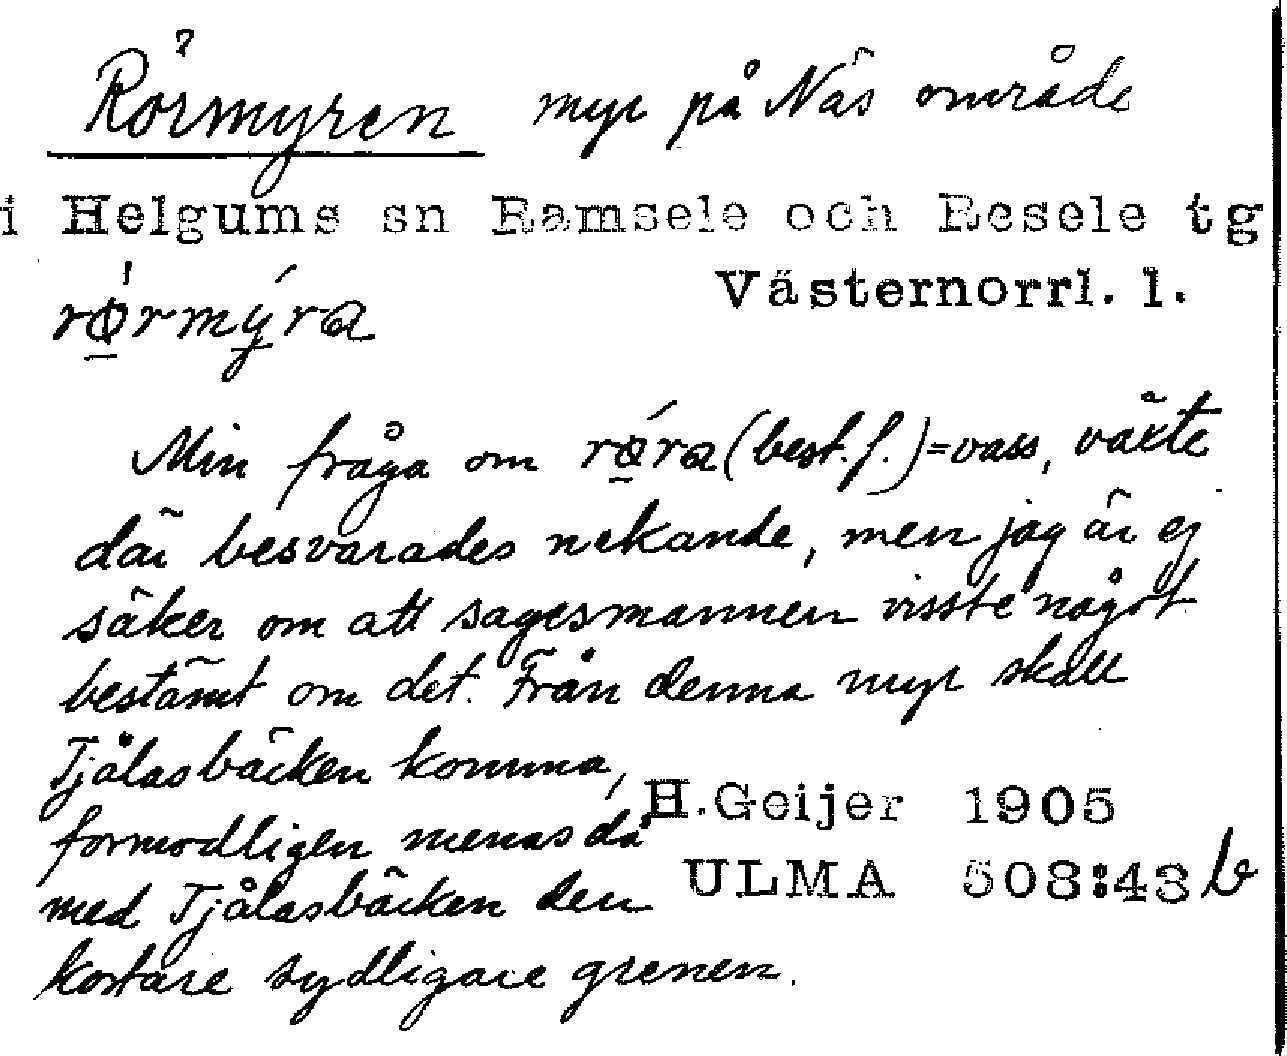 ?
Rörmyren myr på Näs område
i Helgums sn Ramsele och Resele tg
Västernorrl. l.
rǿ̱rmýra
Min fråga om rǿ̱ra (best. f.) = vass, växte
där besvarades nekande, men jag är ej
säker om att sagesmannen visste något
bestämt om det. Från denna myr skall
Tjålasbäcken komma,
förmodligen menas då
med Tjålasbäcken den
kortare sydligare grenen.
H.Geijer 1905
ULMA 508:43 b